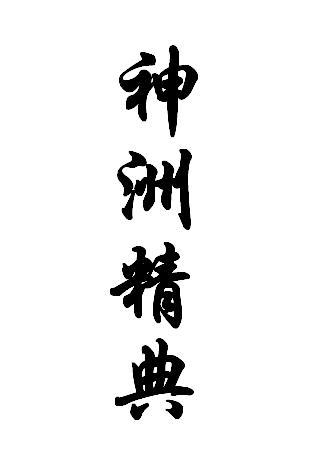 神洲精典